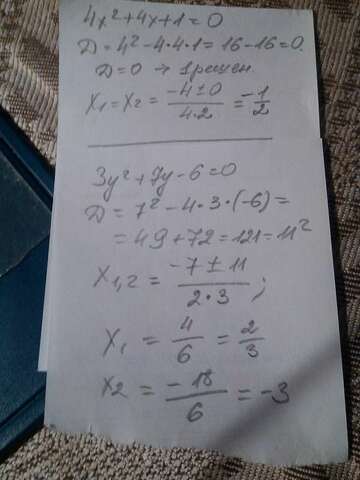 4x² + 4x + 1 = 0
D = 4² - 4·4·1 = 16 - 16 = 0.
D = 0 → 1 решен.
X₁ = X₂ = (-4 ± 0)/(4·2) = -1/2
3y² + 7y - 6 = 0
D = 7² - 4·3·(-6) =
= 49 + 72 = 121 = 11²
X₁,₂ = (-7 ± 11)/(2·3) ;
X₁ = 4/6 = 2/3
X₂ = -18/6 = -3